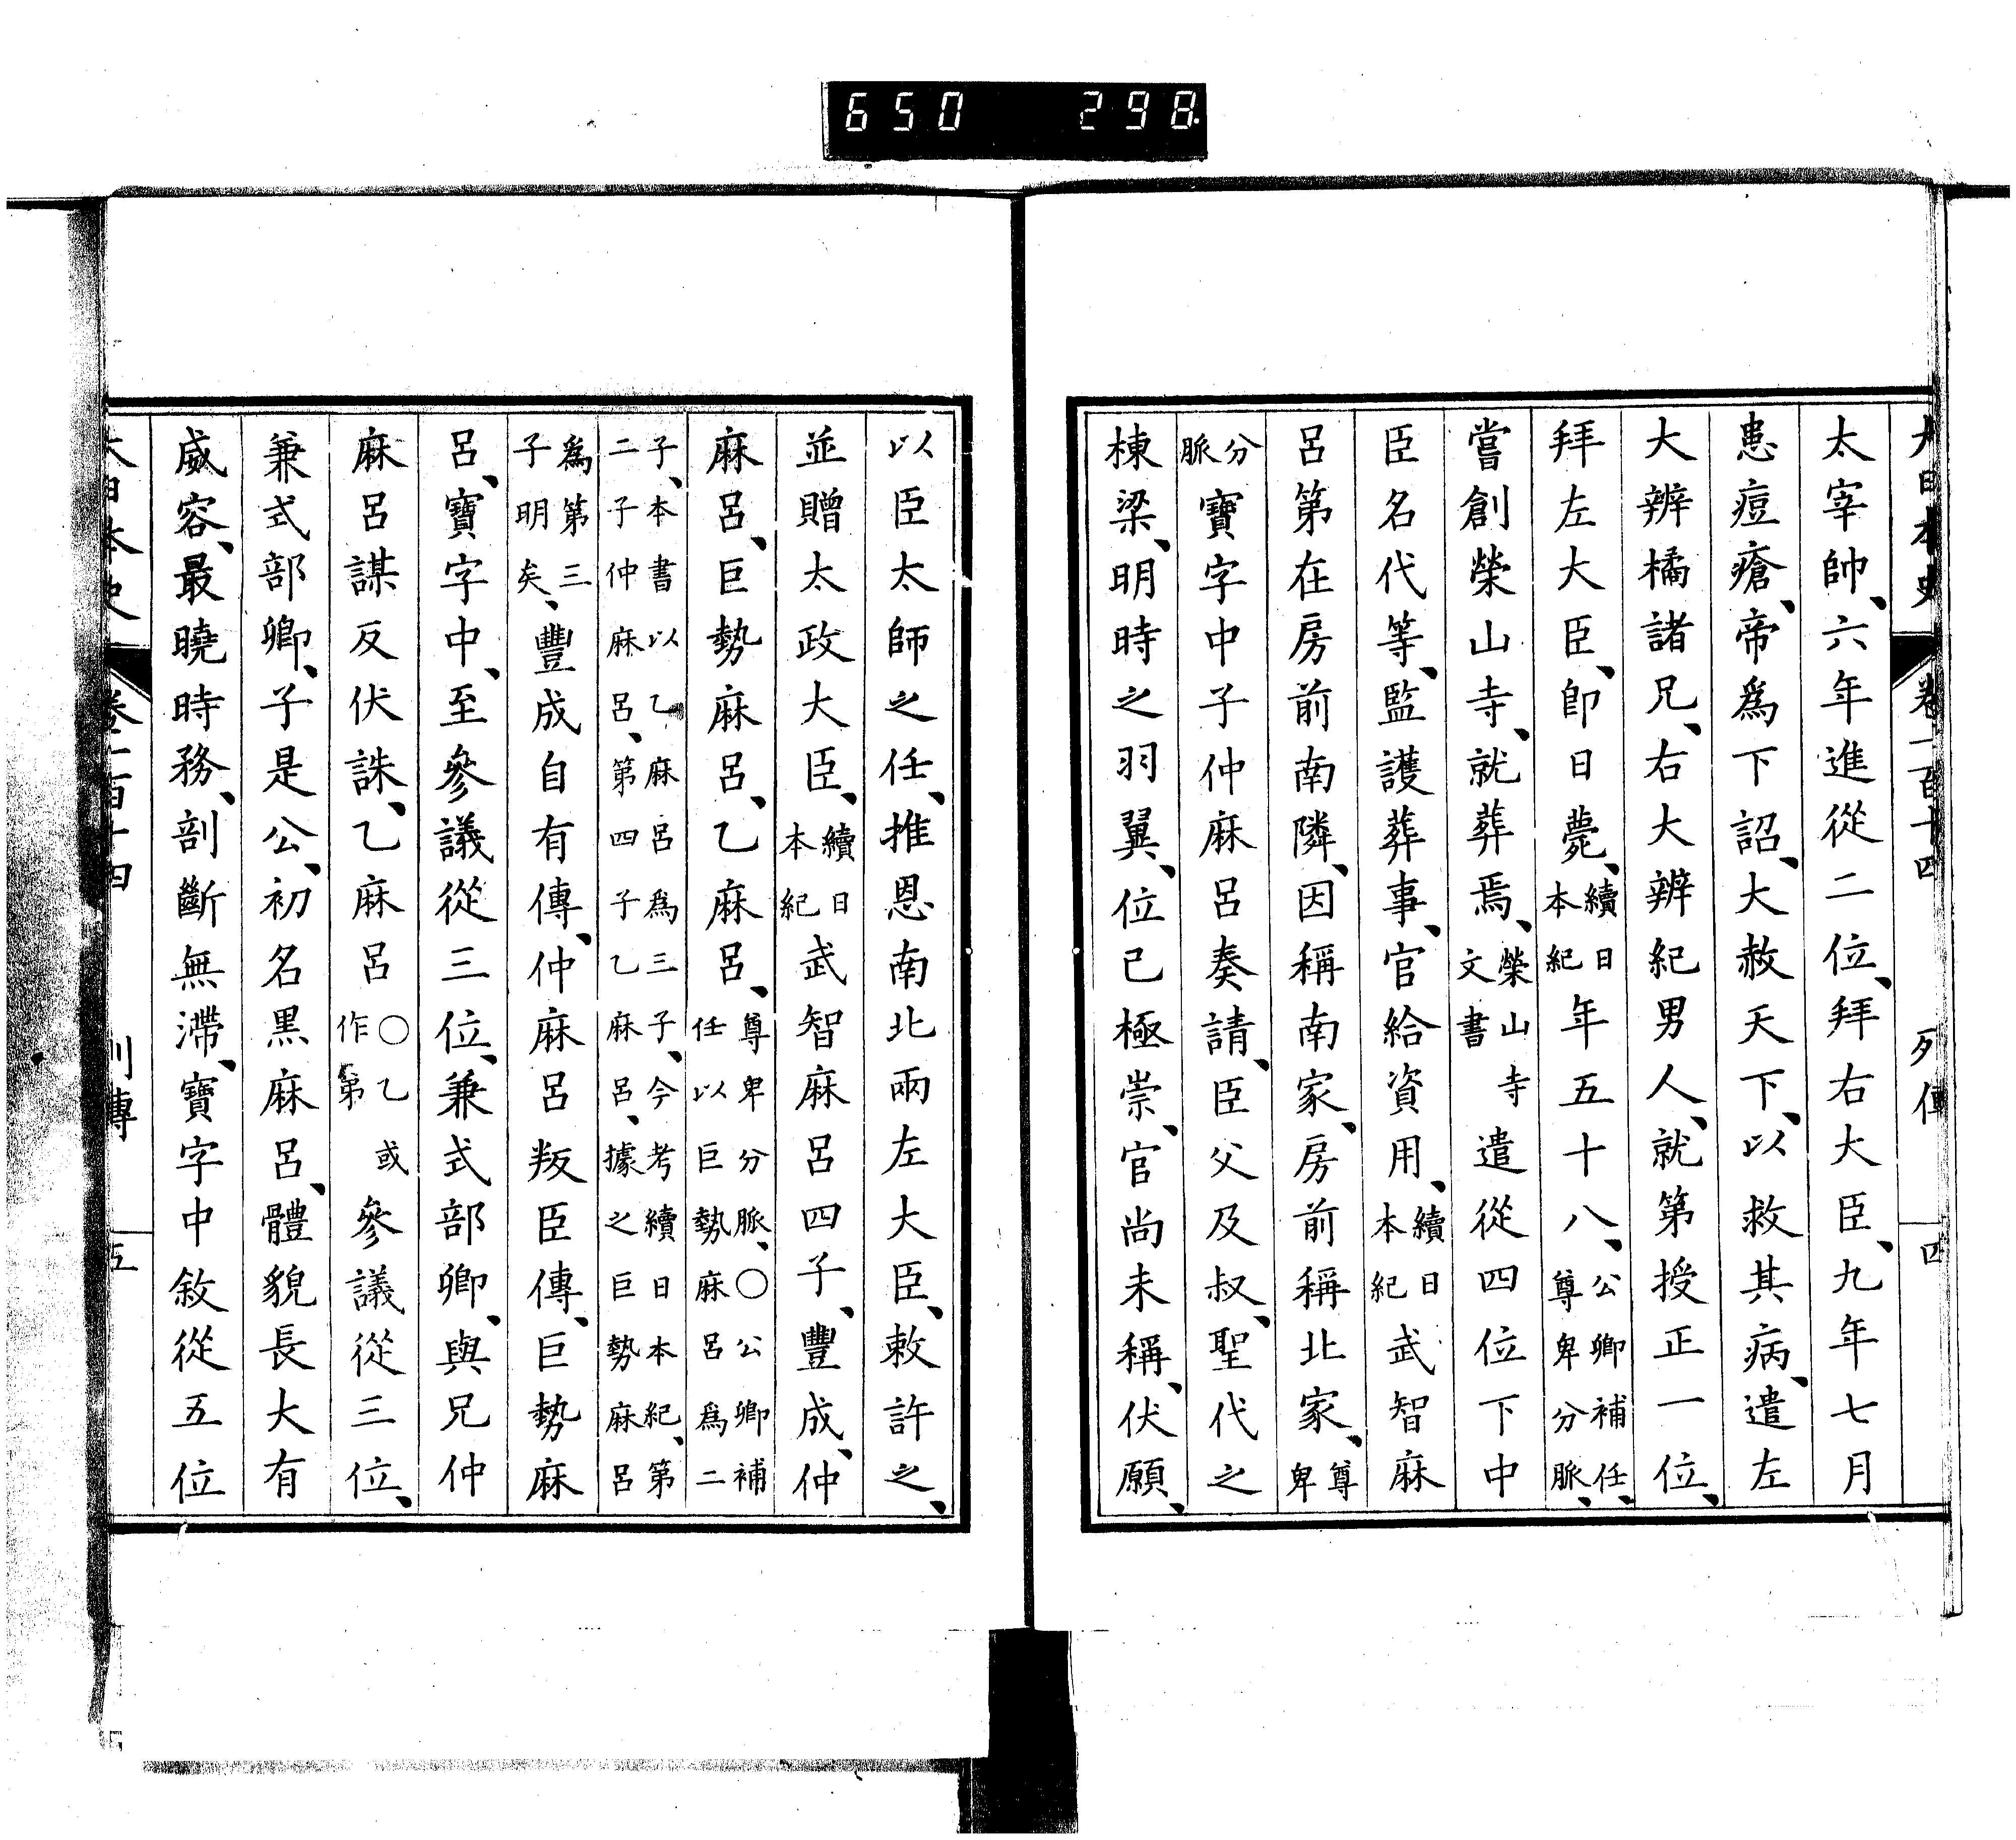 650 298
大日本史 卷一百十四 列傳 四
太宰帥、六年進從二位、拜右大臣、九年七月
患痘瘡、帝爲下詔、大赦天下、以救其病、遣左
大辨橘諸兄、右大辨紀男人、就第授正一位、
拜左大臣、卽日薨、續日本紀年五十八、公卿補任、尊卑分脈、
嘗創榮山寺、就葬焉、榮山寺文書遣從四位下中
臣名代等、監護葬事、官給資用、續日本紀武智麻
呂第在房前南隣、因稱南家、房前稱北家、尊卑
分脈寶字中子仲麻呂奏請、臣父及叔、聖代之
棟梁、明時之羽翼、位已極崇、官尚未稱、伏願、
以臣太師之任、推恩南北兩左大臣、敕許之、
並贈太政大臣、續日本紀武智麻呂四子、豐成、仲
麻呂、巨勢麻呂、乙麻呂、尊卑分脈、〇公卿補任以巨勢麻呂爲二
子、本書以乙麻呂爲三子、今考續日本紀、第二子仲麻呂、第四子乙麻呂、據之巨勢麻呂
爲第三子明矣、豐成自有傳、仲麻呂叛臣傳、巨勢麻
呂、寶字中、至參議從三位、兼式部卿、與兄仲
麻呂謀反伏誅、乙麻呂〇乙或作第參議從三位、
兼式部卿、子是公、初名黑麻呂、體貌長大有
威容、最曉時務、剖斷無滯、寶字中敘從五位
大日本史 卷一百十四 列傳 五